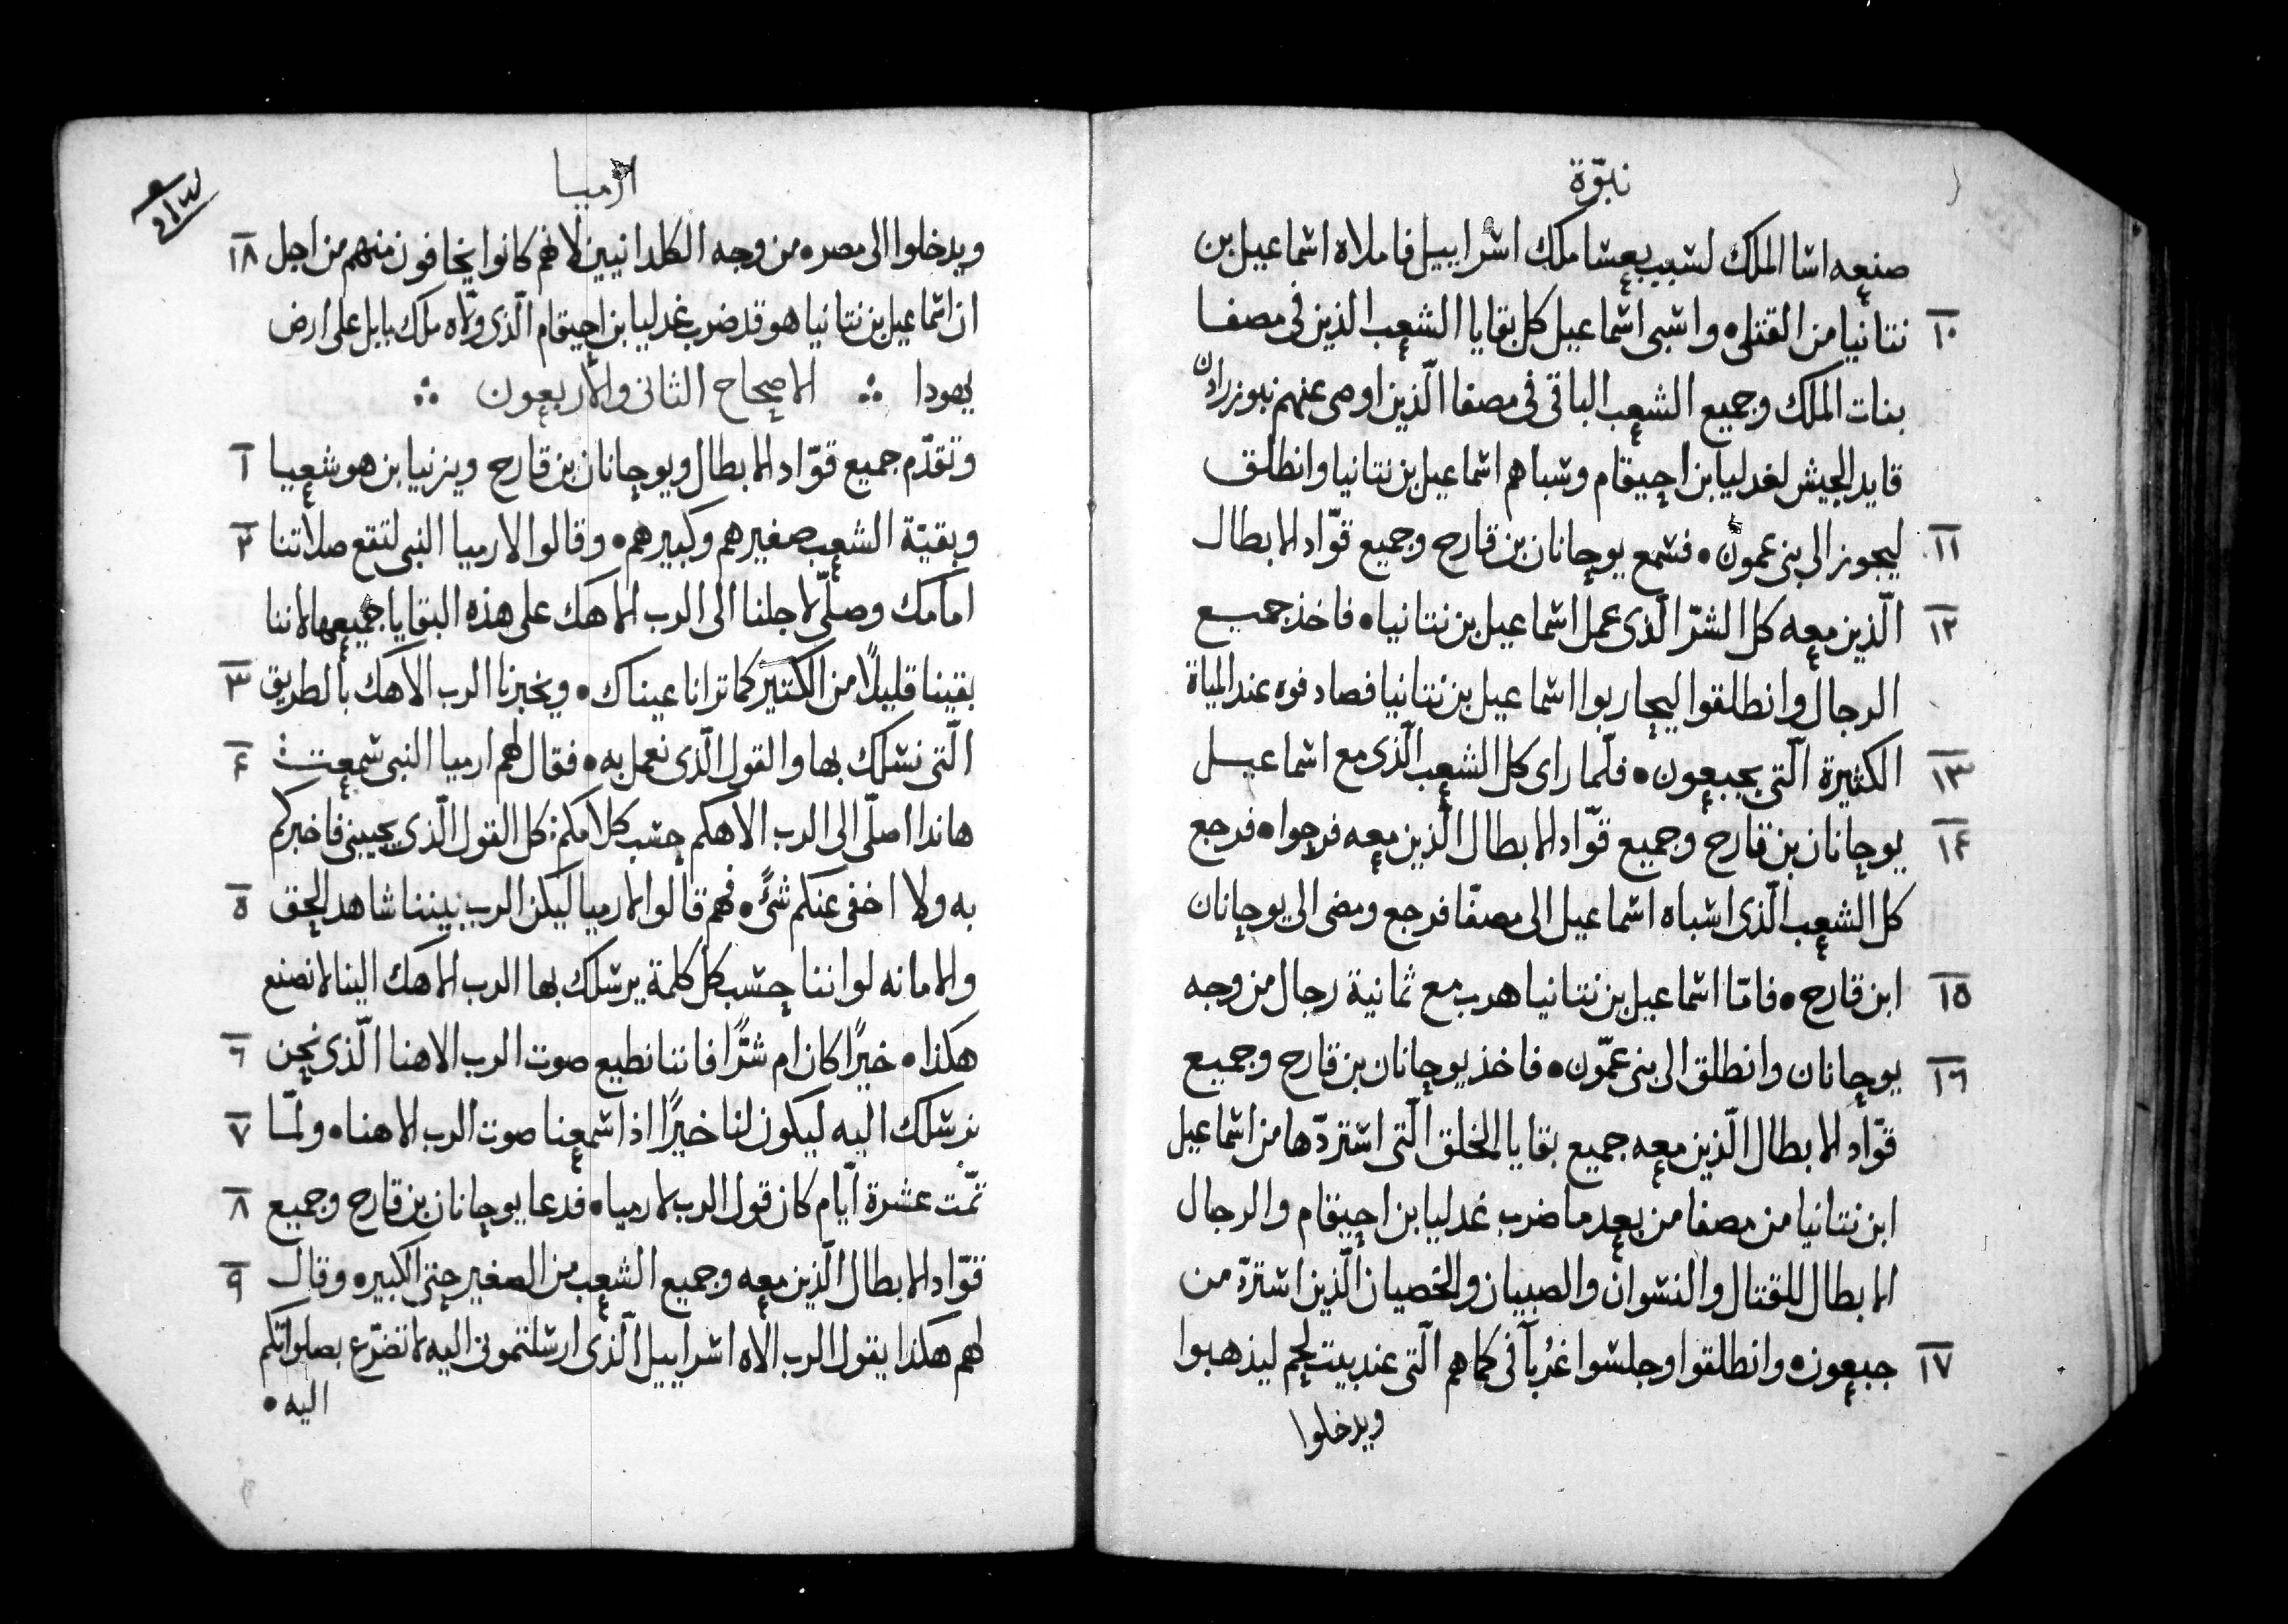 نبوّة
صنعه اسا الملك لسبب بعشا ملك اسراييل فاملاه اسماعيل بن
١٠ نتانيا من القتلى • واسبى اسماعيل كل بقايا الشعب الذين فى مصفا
بنات الملك وجميع الشعب الباقى فى مصفا الّذين اوصى عنهم نبوزرادن
قايد الجيش لغدليا بن احيقام وسباهم اسماعيل بن نتانيا وانطلق
١١ ليجوز الى بنى عمون • فسمع يوحانان بن قارح وجميع قوّاد الابطال
١٢ الّذين معه كل الشرّ الّذى عمل اسماعيل بن نتانيا • فاخذ جميع
الرجال وانطلقوا ليحاربوا اسماعيل بن نتانيا فصادفوه عند المياة
١٣ الكثيرة الّتى بجبعون • فلّما راى كل الشعب الّذى مع اسماعيل
١٤ يوحانان بن قارح وجميع قوّاد الابطال الّذين معه فرحوا • فرجع
كل الشعب الّذى اسباه اسماعيل الى مصفّا فرجع ومضى الى يوحانان
١٥ ابن قارح • فامّا اسماعيل بن نتانيا هرب مع ثمانية رجال من وجه
١٦ يوحانان وانطلق الى بنى عمّون • فاخذ يوحانان بن قارح وجميع
قوّاد الابطال الّذين معه جميع بقايا الخلق الّتى استردّها من اسماعيل
ابن نتانيا من مصفا من بعد ما ضرب غدليا بن احيقام والرجال
الابطال للقتال والنسوان والصبيان والخصيان الّذين استردّ من
١٧ جبعون • وانطلقوا وجلسوا غُربآ فى كماهم الّتى عند بيت لحم ليذهبوا
ويدخلوا
ارميا
١٨ ويدخلوا الى مصر • من وجه الكلدانيين لانهم كانوا يخافون منهم من اجل
ان اسماعيل بن نتانيا هو قد ضرب غدليا بن احيقام الّذى ولّاه ملك بابل على ارض
يهودا ∴ الاصحاح الثانى والاربعون ∴
١ وتقدّم جميع قوّاد الابطال ويوحانان بن قارح ويزنيا بن هوشعيا
٢ وبقيّة الشعب صغيرهم وكبيرهم • وقالوا لارميا النبى لتقع صلاتنا
امامك وصلّى لاجلنا الى الرب الاهك على هذه البقايا جميعها لاننا
٣ بقينا قليلًا من الكتير كما ترانا عيناك • ويخبرنا الرب الاهك بالطريق
٤ الّتى نسلك بها والقول الّذى نعمل به • فقال لهم ارميا النبى سمعت
هاندا اصلّى الى الرب الاهكم حسب كلامكم: كل القول الّذى يجيبنى فاخبركم
٥ به ولا اخفى عنكم شئً • فهم قالوا لارميا ليكن الرب بيننا شاهد الحق
والامانه لو اننا حسب كل كلمة يرسلك بها الرب الاهك الينا لا نصنع
٦ هكذا • خيرًا كان ام شرًّا فاننا نطيع صوت الرب الاهنا الّذى نحن
٧ نرسلك اليه ليكون لنا خيرًا اذا سمعنا صوت الرب الاهنا • ولمّا
٨ تمّت عشرة ايّام كان قول الرب لارميا • فدعا يوحانان بن قارح وجميع
٩ قوّاد الابطال الّذين معه وجميع الشعب من الصغير حتى الكبير • وقال
لهم هكذا يقول الرب الاه اسراييل الّذى ارسلتمونى اليه لاتضرّع بصلواتكم
اليه •